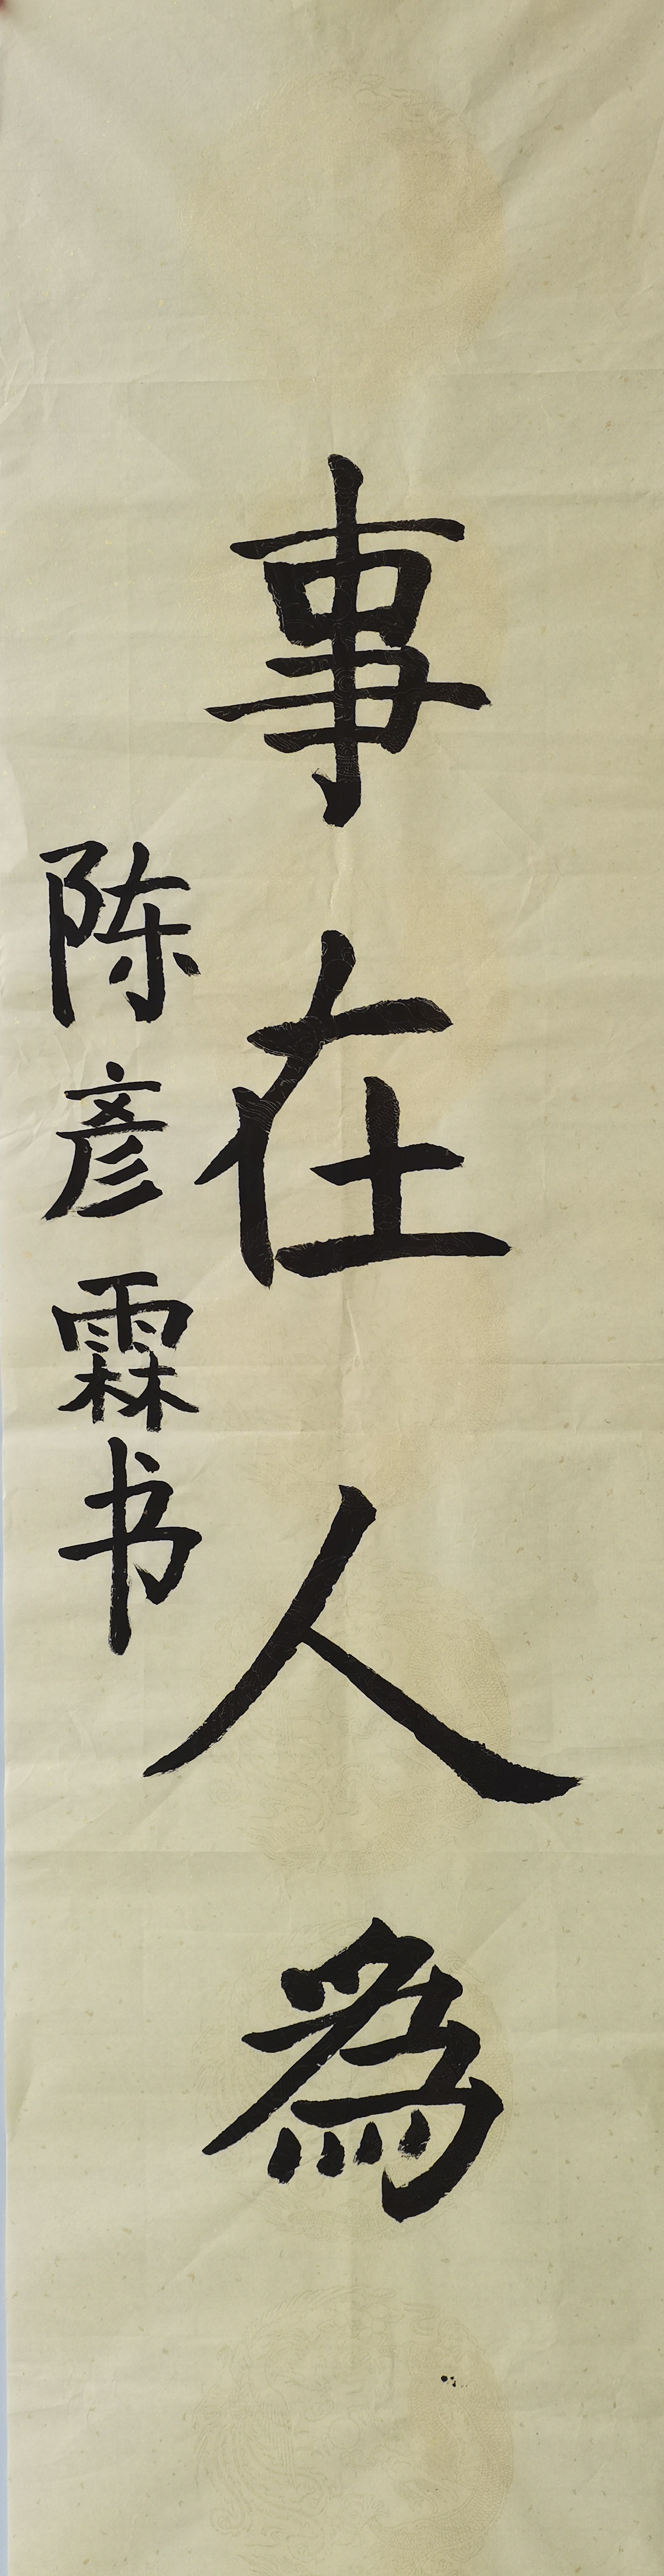 事在人為
陈彦霖书